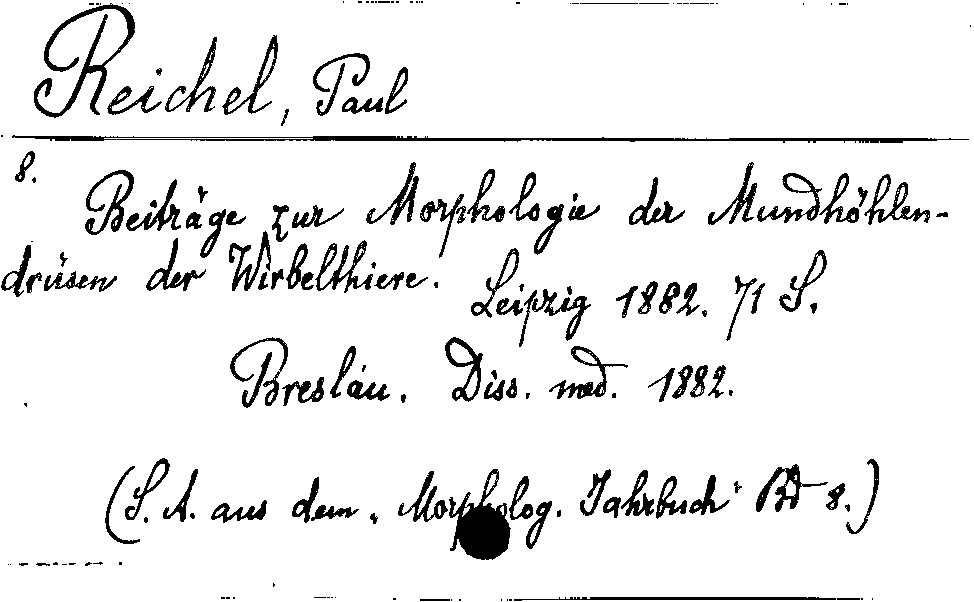 Reichel, Paul
8.
Beiträge zur Morphologie der Mundhöhlen-
drüsen der Wirbelthiere.
Leipzig 1882. 71 S.
Breslau. Diss. med. 1882.
(S. A. aus dem „Morpholog. Jahrbuch“ Bd 8.)